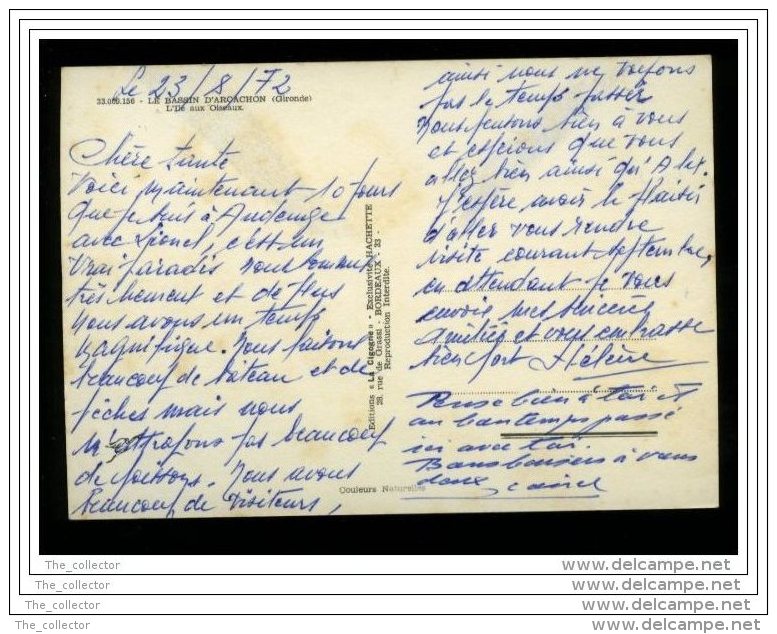 Le 23/8/72
33.000.156 - LE BASSIN D'ARCACHON (Gironde)
L'Ile aux Oiseaux.
Chère tante
Voici maintenant 10 jours
que je suis à Audenge
avec Lionel, c'est un
vrai paradis nous sommes
très heureux et de plus
nous avons un temps
magnifique. Nous faisons
beaucoup de bateau et de
pêches mais nous
n'attrapons pas beaucoup
de poissons. Nous avons
beaucoup de visiteurs,
Editions « La Cigogne » - Exclusivité HACHETTE
28, rue de Grassi - BORDEAUX - 33 -
Reproduction Interdite.
Couleurs Naturelles
ainsi nous ne voyons
pas le temps passer
Nous pensons bien à vous
et espérons que vous
allez bien ainsi qu'Alex.
J'espère avoir le plaisir
d'aller vous rendre
visite courant septembre,
en attendant je vous
envoie mes sincères
amitiés et vous embrasse
bien fort Hélène
Pense bien à toi et
au bon temps passé
ici avec toi.
Bons baisers à vous
deux
The_collector
The_collector
The_collector
The_collector
www.delcampe.net
www.delcampe.net
www.delcampe.net
www.delcampe.net